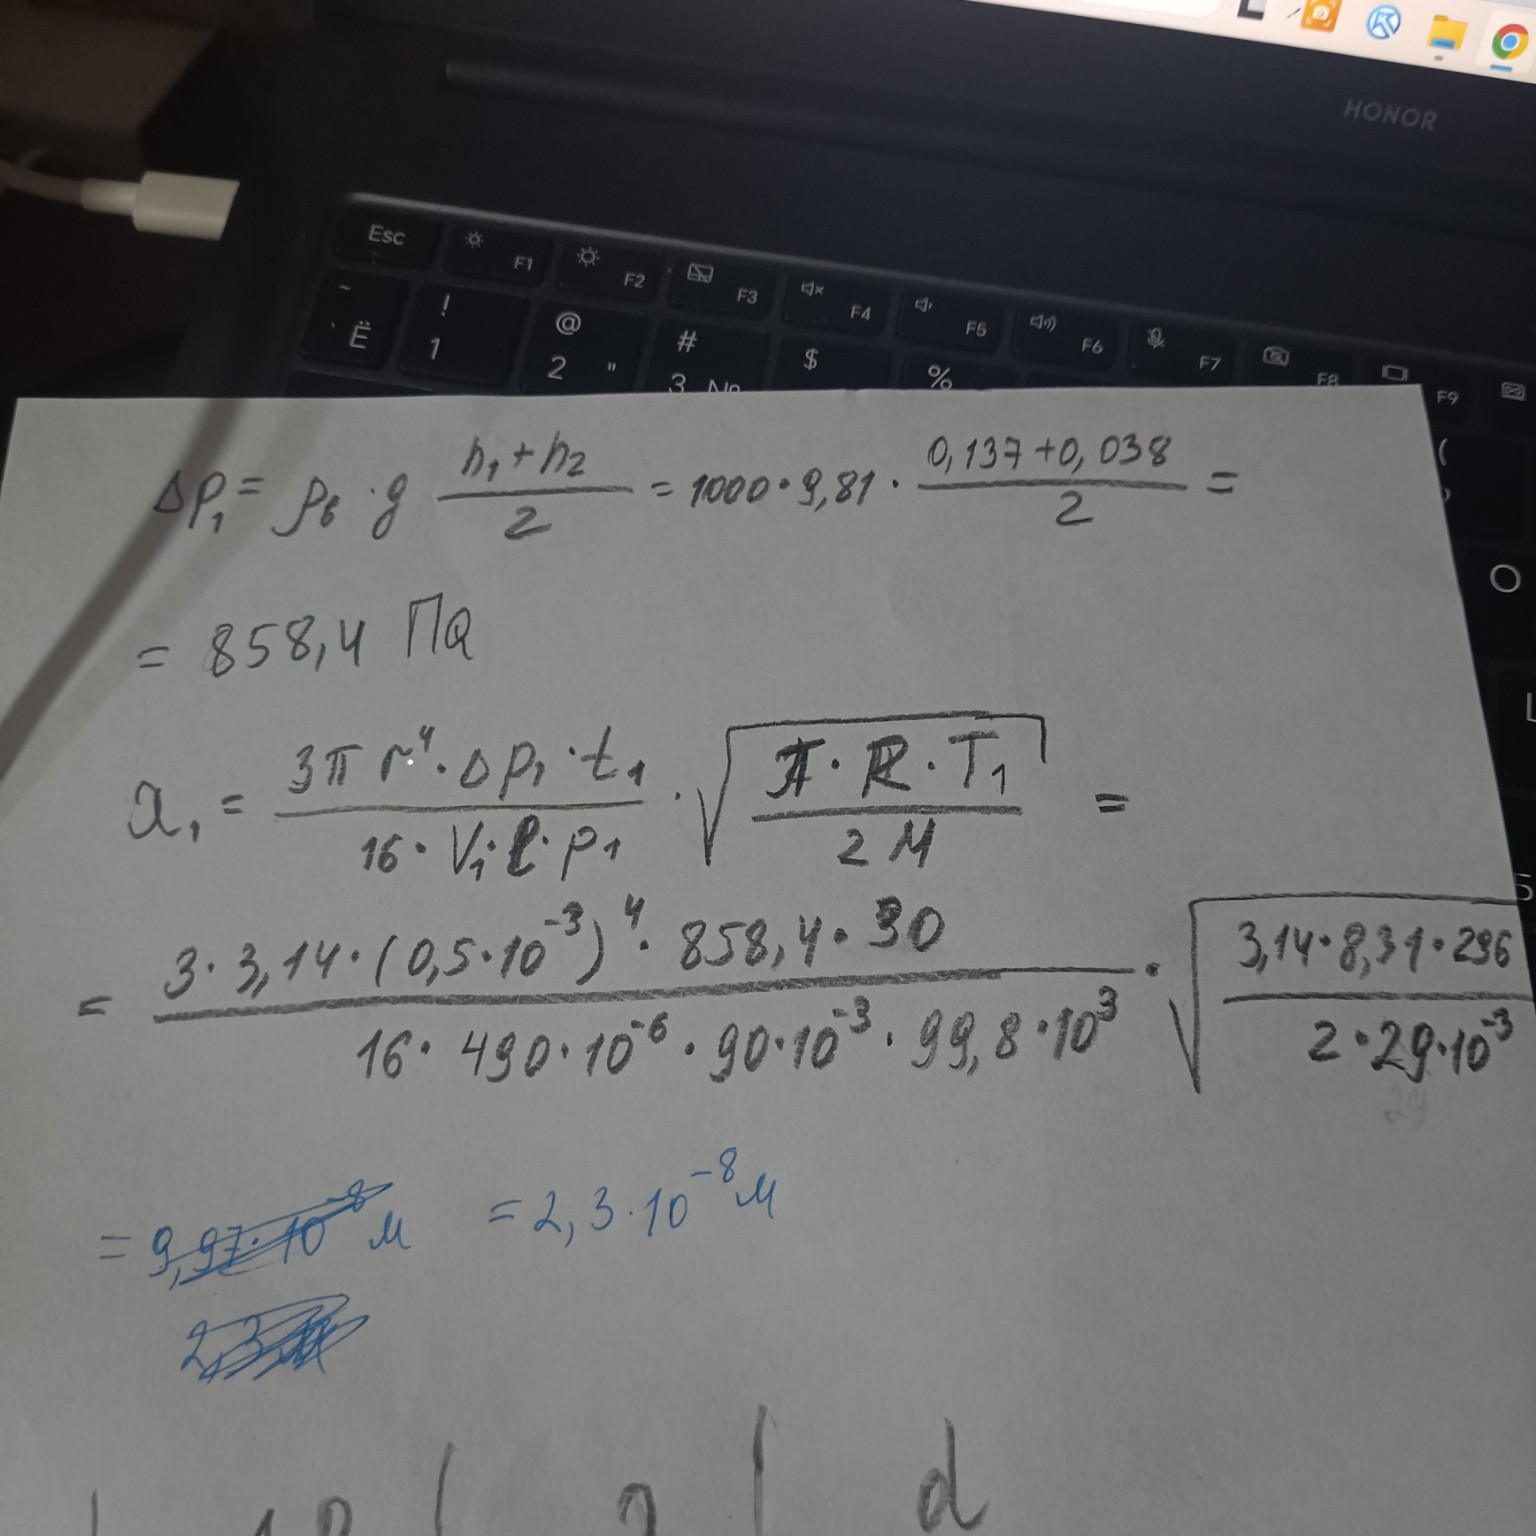 HONOR
Esc F1 F2 F3 F4 F5 F6 F7 F8 F9
~ Ё ! 1 @ 2 " # 3 № $ % (
Δp₁ = ρв · g (h₁ + h₂)/2 = 1000 · 9,81 · (0,137 + 0,038)/2 =
= 858,4 Па
λ₁ = (3π r⁴ · Δp₁ · t₁)/(16 · V₁ · ℓ · p₁) · √((π · R · T₁)/(2 M)) =
= (3 · 3,14 · (0,5 · 10⁻³)⁴ · 858,4 · 30)/(16 · 490 · 10⁻⁶ · 90 · 10⁻³ · 99,8 · 10³) · √((3,14 · 8,31 · 296)/(2 · 29 · 10⁻³))
= 9,97 · 10⁻⁸ м = 2,3 · 10⁻⁸ м
d